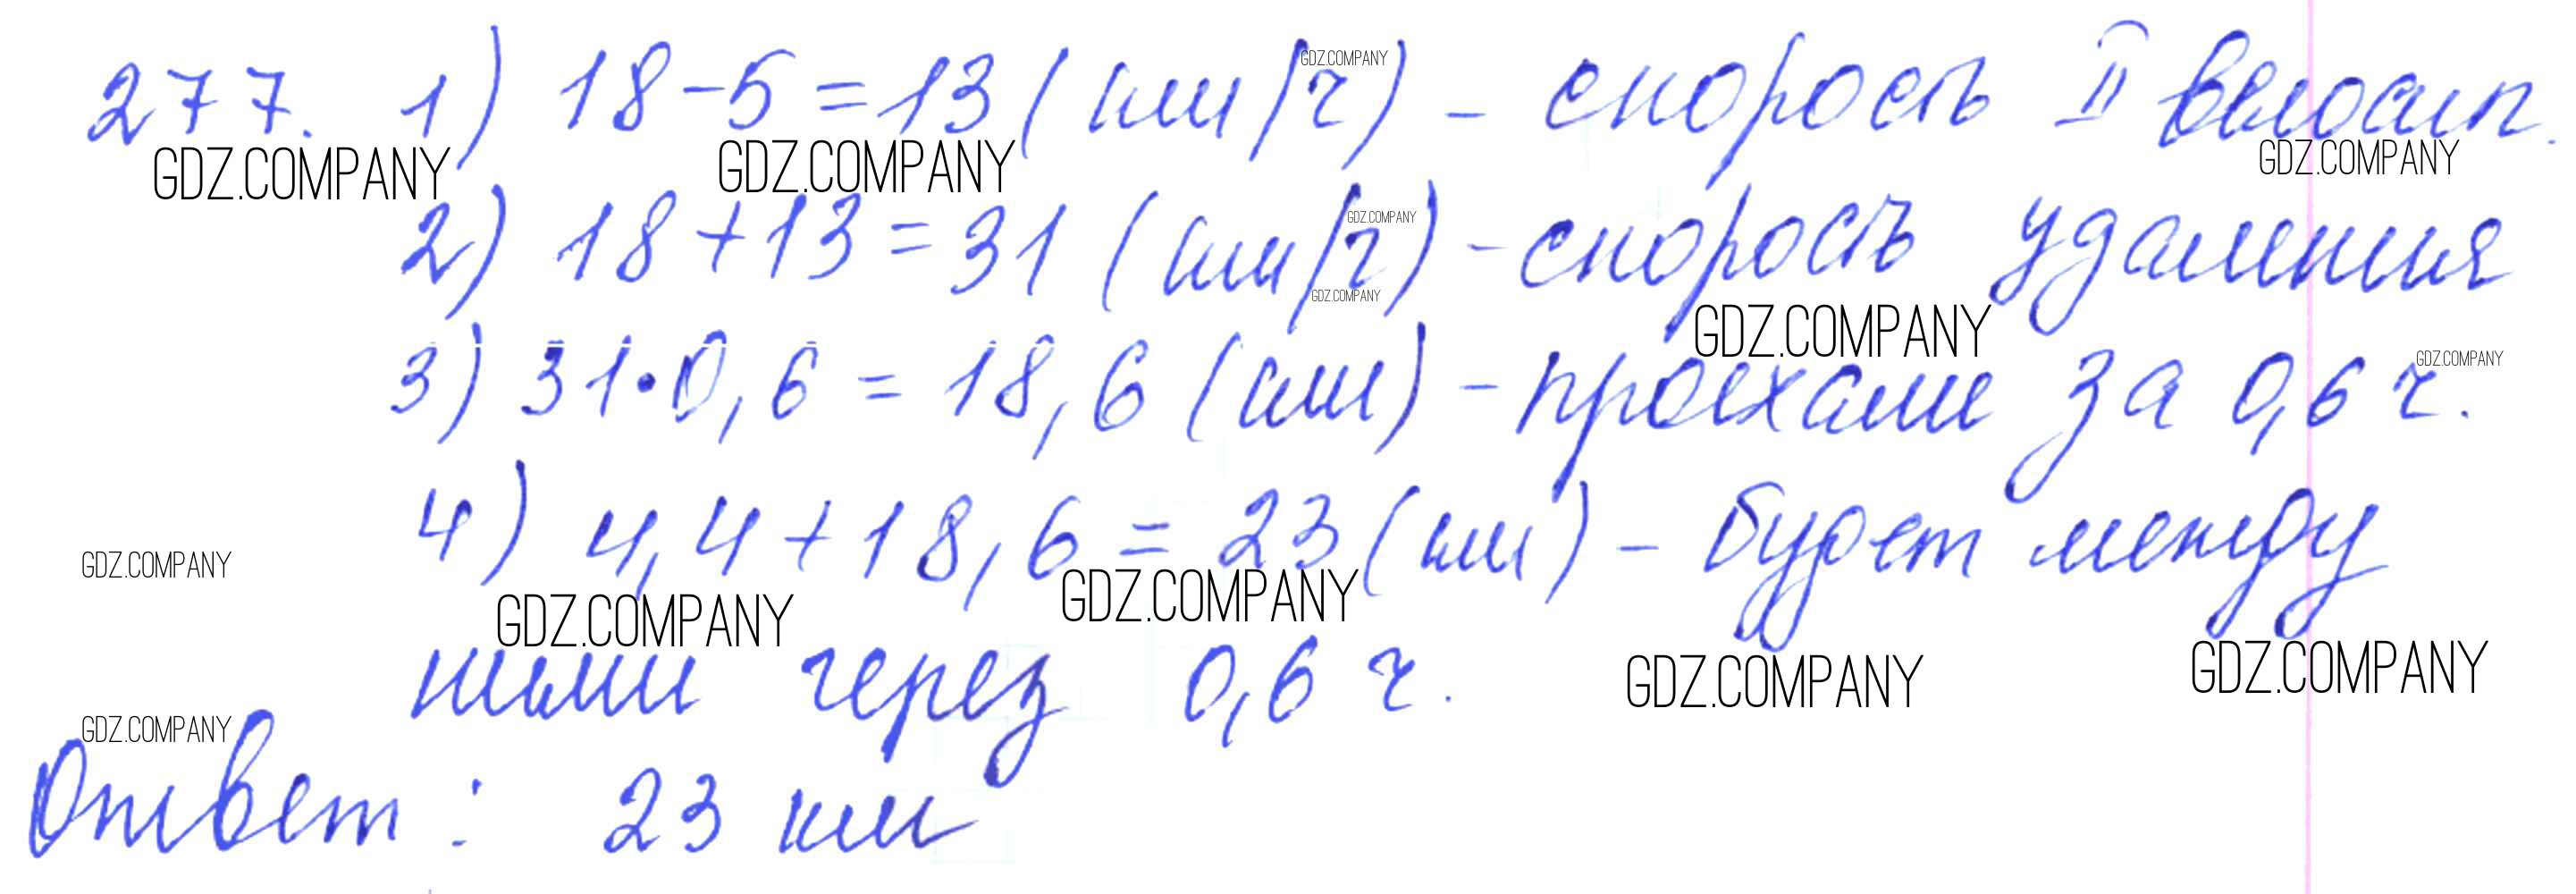 277. 1) 18-5=13(км/ч) - скорость II велосип.
2) 18+13=31 (км/ч) - скорость удаления
3) 31•0,6 = 18,6 (км) - проехали за 0,6 ч.
4) 4,4+18,6 = 23(км) - будет между
ними через 0,6 ч.
Ответ: 23 км
GDZ.COMPANY
GDZ.COMPANY
GDZ.COMPANY
GDZ.COMPANY
GDZ.COMPANY
GDZ.COMPANY
GDZ.COMPANY
GDZ.COMPANY
GDZ.COMPANY
GDZ.COMPANY
GDZ.COMPANY
GDZ.COMPANY
GDZ.COMPANY
GDZ.COMPANY